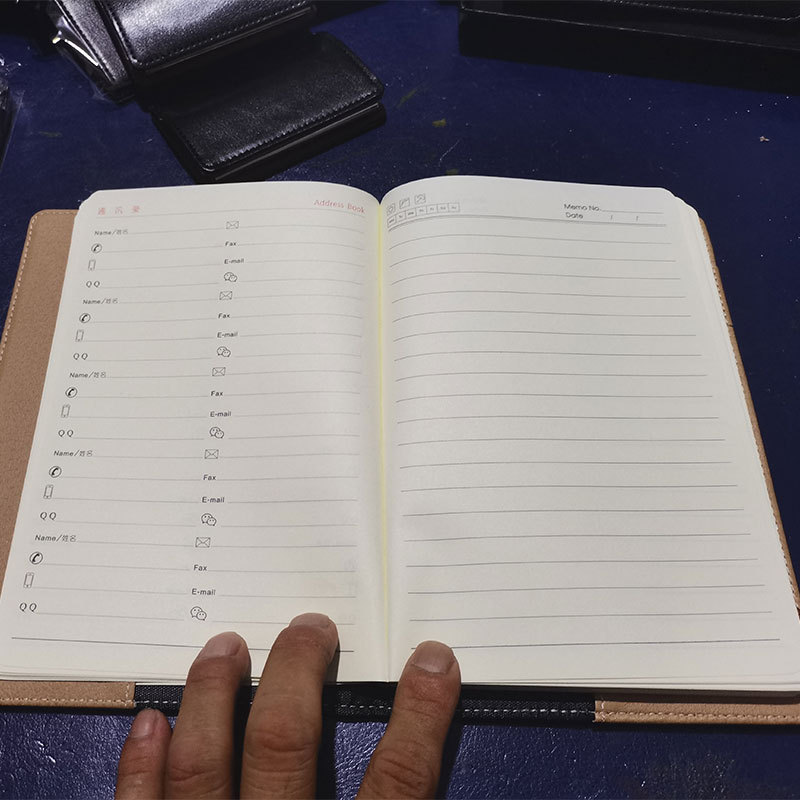 通 讯 录 Address Book
Name/姓名
Fax
E-mail
Q Q
Name/姓名
Fax
E-mail
Q Q
Name/姓名
Fax
E-mail
Q Q
Name/姓名
Fax
E-mail
Q Q
Name/姓名
Fax
E-mail
Q Q
Memo No.
Date / /